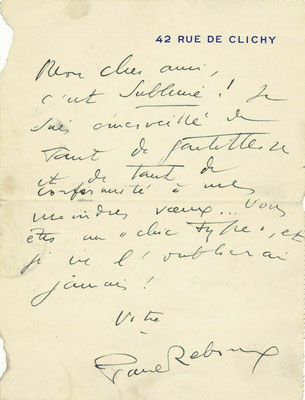 42 RUE DE CLICHY
Mon cher ami,
c'est sublime ! Je
suis émerveillé de
tant de gentillesse
et de tant de
conformité à mes
moindres vœux... Vous
êtes un "chic type", et
je ne l'oublierai
jamais !
Votre
Paul Reboux